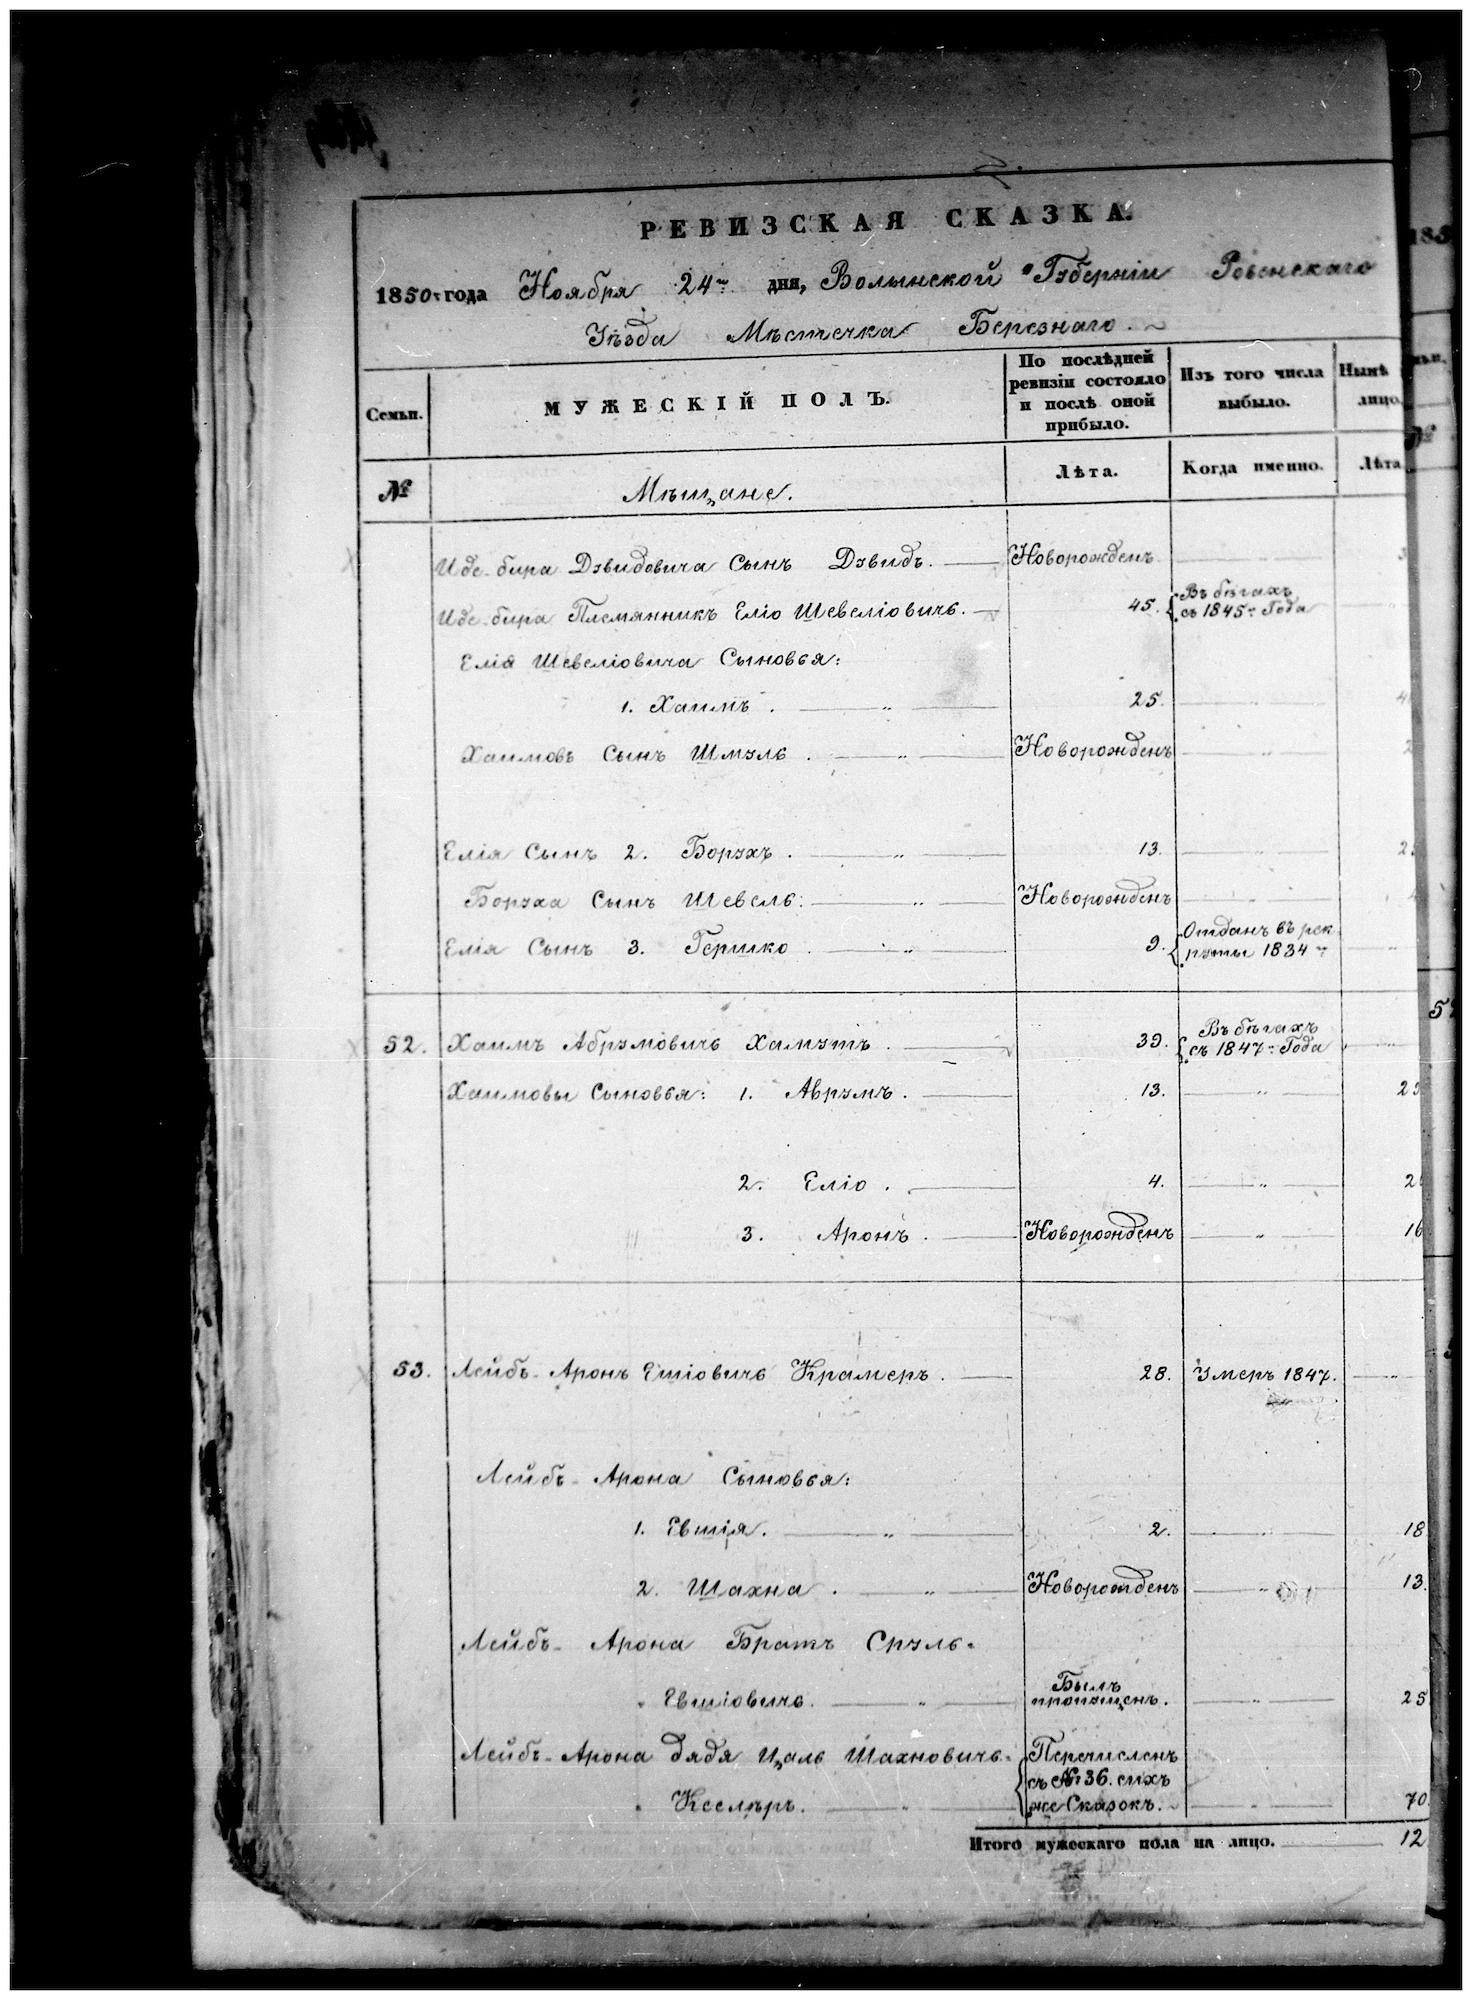 РЕВИЗСКАЯ СКАЗКА.
1850 года Ноября 24 дня, Волынской Губерніи Ровенскаго
Уѣзда Мѣстечка Березнаго.
Семьи.
МУЖЕСКІЙ ПОЛЪ.
По послѣдней
ревизіи состояло
и послѣ оной
прибыло.
Изъ того числа
выбыло.
Нынѣ
лицо.
№
Мѣщане.
Лѣта.
Когда именно.
Лѣта
Иде-бира Дувидовича Сынъ Дувидъ. Новорожденъ
Иде-бира Племянникъ Еліо Шевеліовичъ. 45. Въ бѣгахъ
съ 1845 Года
Елія Шевеліовича Сыновья:
1. Хаимъ. 25. 4
Хаимовъ Сынъ Шмуль. Новорожденъ 2
Елія Сынъ 2. Борухъ. 13. 2
Боруха Сынъ Шевель: Новорожденъ
Елія Сынъ 3. Гершко. 9. Отданъ въ рек
руты 1834
52. Хаимъ Абрумовичъ Хамутъ. 39. Въ бѣгахъ
съ 1847 Года
Хаимовы Сыновья: 1. Аврумъ. 13. 2
2. Еліо. 4. 2
3. Аронъ. Новорожденъ 16
53. Лейбъ-Аронъ Ешіовичъ Крамеръ. 28. Умеръ 1847.
Лейбъ-Арона Сыновья:
1. Евшія. 2. 18
2. Шахна. Новорожденъ 13.
Лейбъ-Арона Братъ Сруль-
Евшіовичъ. Былъ
пропущенъ. 25
Лейбъ-Арона дядя Цаль Шахновичъ- Перечисленъ
съ № 36. сихъ
Кеслеръ. же Сказокъ. 70
Итого мужескаго пола на лицо. 12